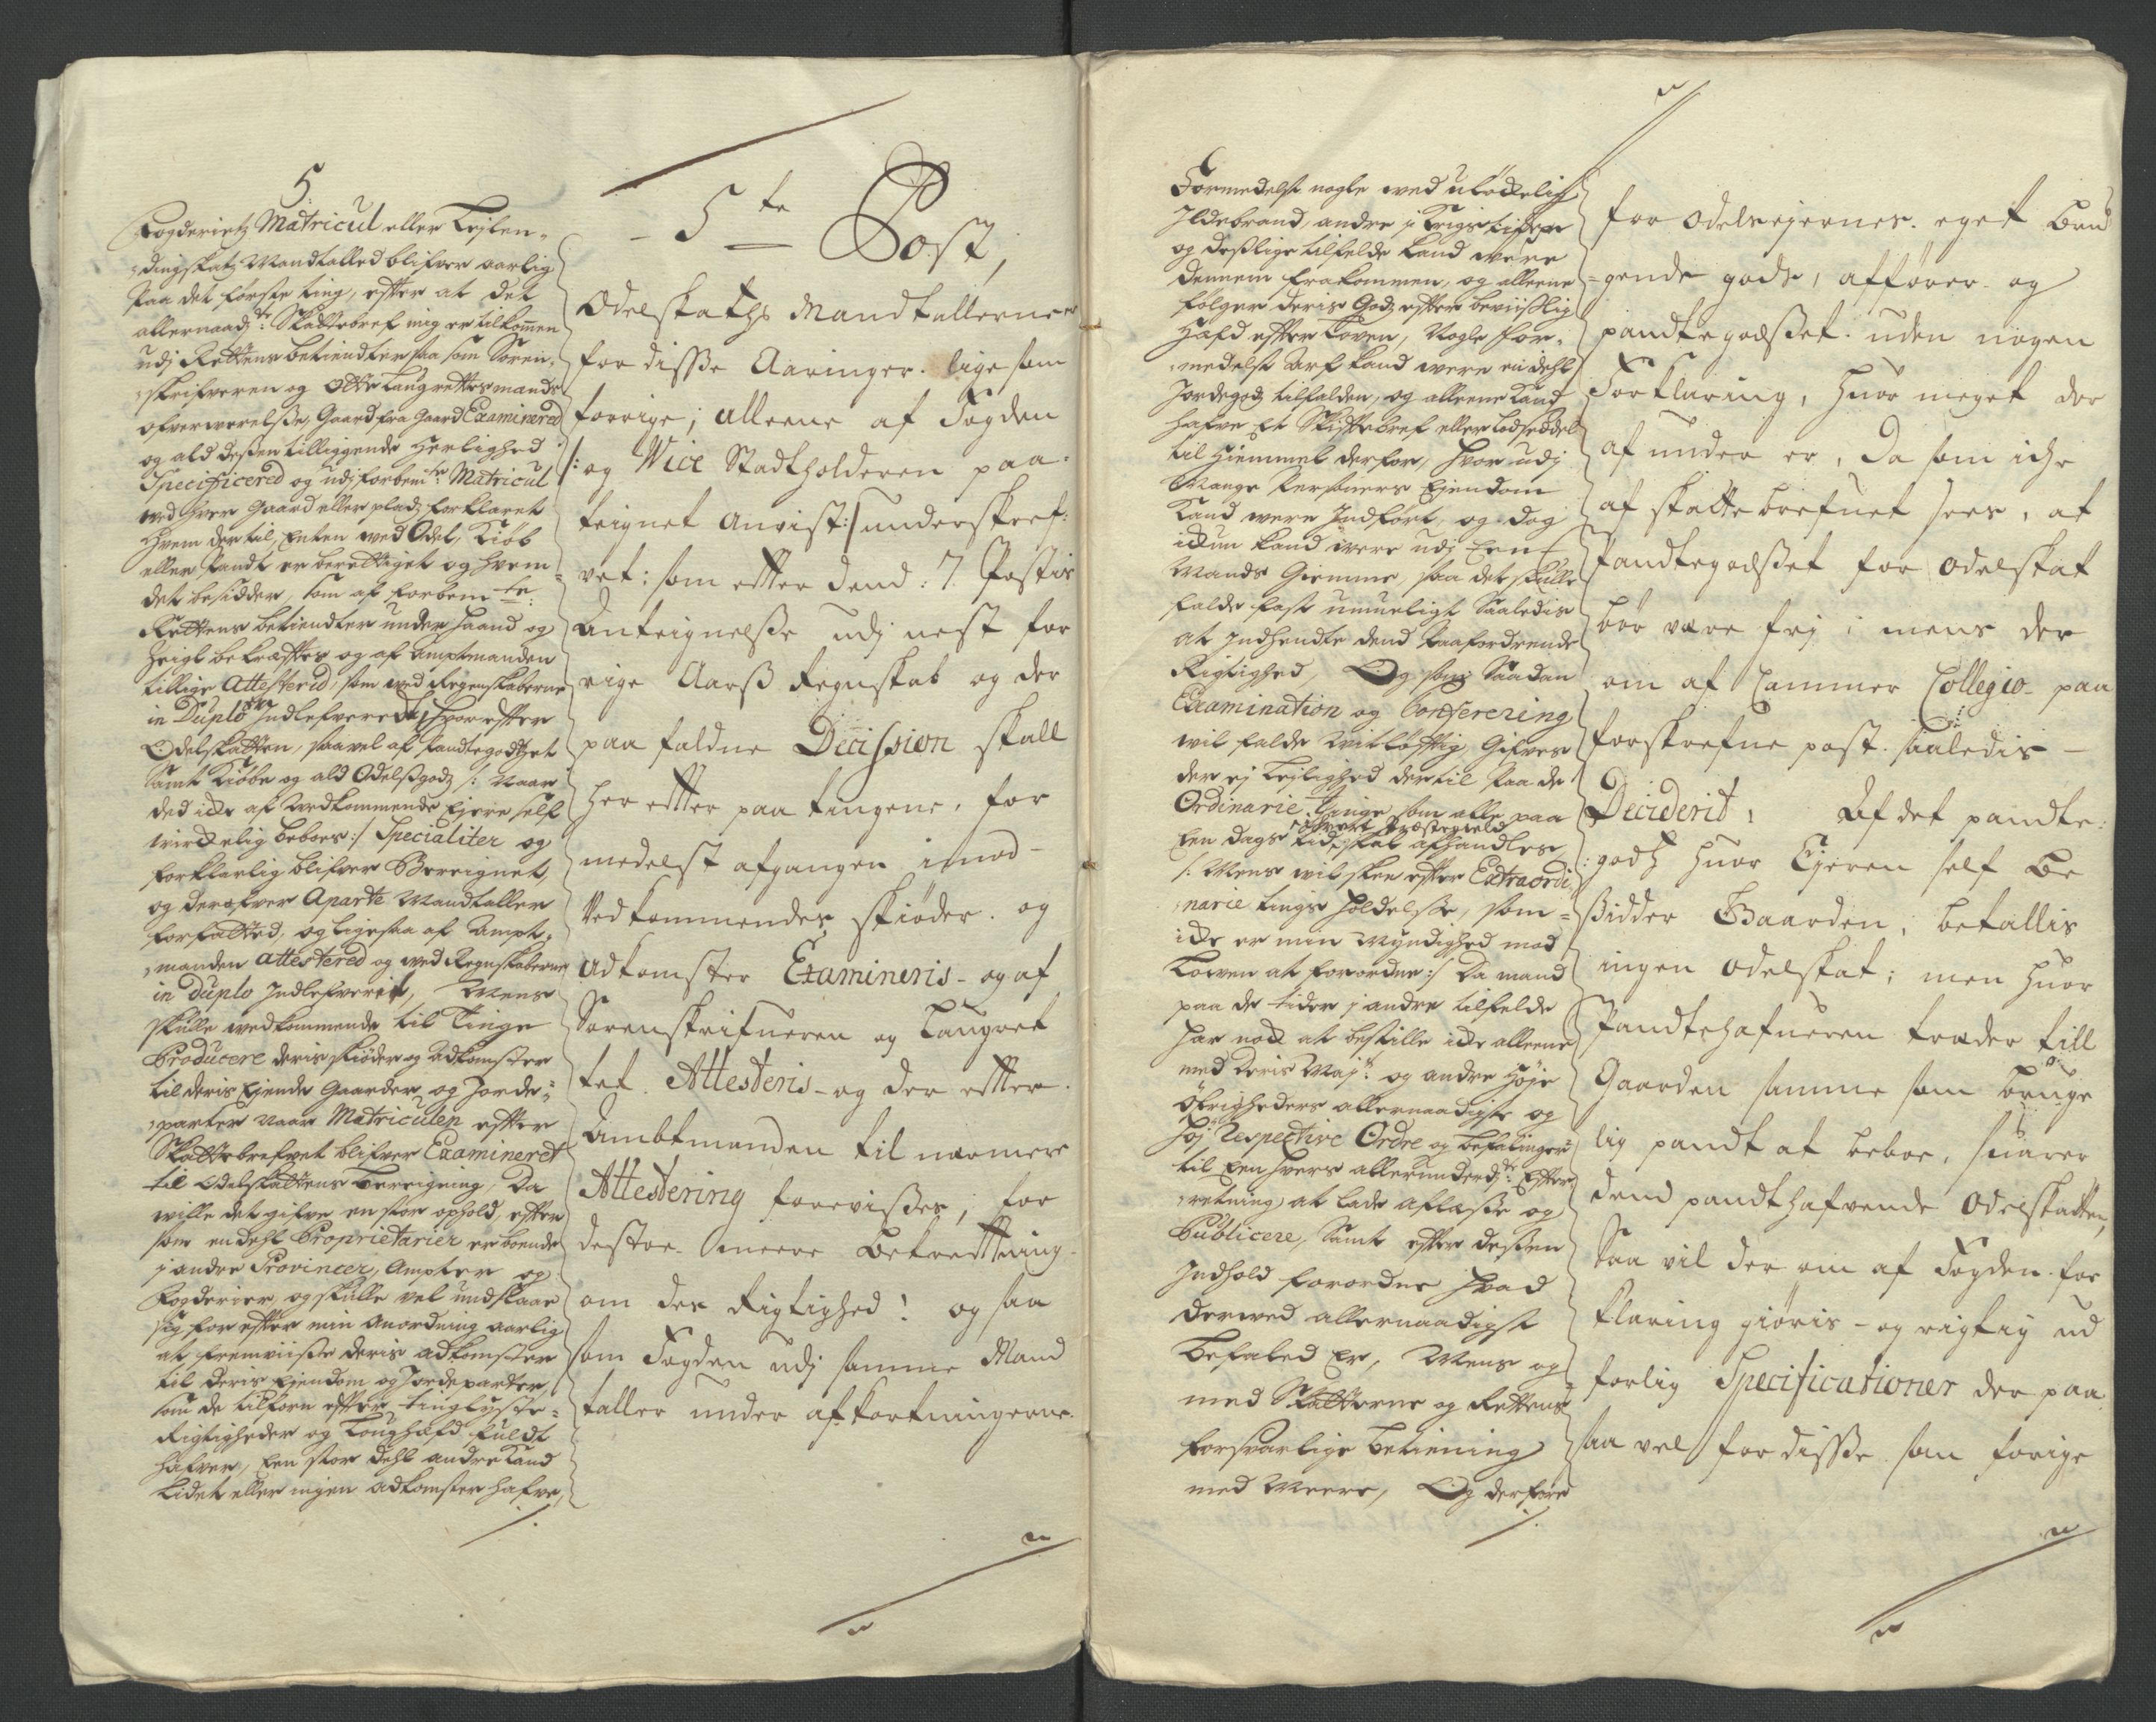 5.
Fogderietz Matricul eller Leylen-
dingskatz Mandtalled blifver aarlig
Paa det første ting, effter at det
allernaadste Skattebref mig er tilkommen
udj Rettens betiendter saa som Soren-
skrifveren og Otte Laugrettesmænds
ofverværelsse, Gaard fra Gaard Examinered
og ald dessen tilliggende Herlighed
Specificered og udj forbemte Matricul
ved hver Gaard eller plads forklaret
hvem der til, Enten med Odel, Kiøb
eller Pandt er berettiget og hvem
det besidder, som af forbemte
Rettens betiendter under haand og
Zeigl bekræfftes og af Amptmanden
tillige Attesterid, som ved Regenskaberne
in Duplo er Indlefveredt, hvor effter
Odelskatten, saavel af Pandtegodtzet
samt Kiøbe og ald Odelssgodz /: Naar
ded icke af Vedkommende Ejere self
virckelig beboes :/ Specialiter og
forklarlig blifver Beregnet,
og derofver Aparte Mandtaller
forfatted, og ligesaa af Ampt-
manden attestered og ved Regnskaberne
in duplo Indlefverit, Mens
skulle vedkommende til Tinge
Producere deris skiøder og Adkomster
til deris Ejende Gaarder og Jorde-
parter naar Matriculen effter
Skattebrefvet blifver Examineret
til Odelskattens Beregning, Da
wille det gifve en stor ophold, effter
som en dehl Proprietarier er boende
j andre Provincer, Ampter og
Fogderier, og skulle vel undskaae
sig for effter min Anordning aarlig
at fremviisse deris adkomster
til deris Ejendom og Jordeparter,
som de tilforn effter tinglyste
Rigtigheder og Laughæfd fuldt
hafver, Een stor dehl andre kand
lidet eller ingen adkomster hafve,
5te Post,
Odelskatts Mandtallerne er
for disse Aaringer lige som
forrige, alleene af Fogden
/: og Vice Stadtholderen paa-
teignet Anvist :/ underskref-
vet; som effter dend 7 Postis
Anteignelsse udj nest for
rige Aars Regnskab og der
paa faldne Decission skall
her effter paa tingene, for
medelst afgangen imod
Vedkommendes skiøder og
Adkomster Examineris og af
Sorenskrifueren og Laugret
tet Attesteris og der effter
Ambtmanden til nærmere
Attestering forevisses, for
destoe meere bekrefftning
om des Rigtighed! og saa
som Fogden udj samme Mand
taller under afkortningerne
Formedelst nogle ved ulyckelig
Ildebrand, andre j Krigs tider
og desslige tilfelde kand were
dennem frakommen, og alleene
følger deris Godz effter beviislig
Hæfd effter Loven, Nogle for-
medelst Arf kand were en dehl
Jordegodz tilfalden, og alleene kand
hafve Et Skifftebref eller Lodseddel
til Hiemmel derfor, hvor udj
Mange Persohners Ejendom
kand were Indført, og dog
ickun kand were udj Een
Mands Giemme, saa det skulle
falde fast umueligt Saaledis
at Indhendte dend Paafordrende
Rigtighed, Og som Saadan
Examination og Confererring
vil falde Vitløfftig, Gifves
der ej Lejlighed dertil Paa de
Ordinarie Tinge som alle paa
Een dags tid i hvert Præstegield skal afhandles,
/: Mens vil skee effter Extraordi-
narie tings holdelsse, som
icke er min Myndighed mod
Loven at forordne :/ Da mand
paa de tider j andre tilfelde
har nock at bestille icke alleene
med Deris Mayts og andre Høje
Øfrigheders allernaadigste og
høj Respective Ordre og befalinger
til Een hvers allerunderdste Effter-
retning at lade aflæsse og
Publicere, Samt effter dessen
Indhold forordne hvad
derved allernaadigst
Befaled Er, Mens og
med Skatterne og Rettens
forsvarlige betiening
med Meere, Og derfore
for Odelsejernes eget bru-
gende gods, affører og
pandtegodsset uden nogen
Forklaring, huor meget der
af under er, Da som iche
af skattebrefuet sees, at
Pandtegodsset for Odelskat
bør være frj; mens der
om af Cammer Collegio paa
forskrefne post saaledis
Deciderit, Af det pandte-
godtz huor Ejeren self be
sidder Gaarden, betallis
ingen Odelskat; men huor
Pandtehafueren træder till
Gaarden samme som bruge
lig pandt at beboe, suarer
dend pandthafvende Odelskatten,
Saa vil der om af Fogden for
klaring giøris og rigtig ud
førlig Specificationer der paa
saa vel for disse som forige